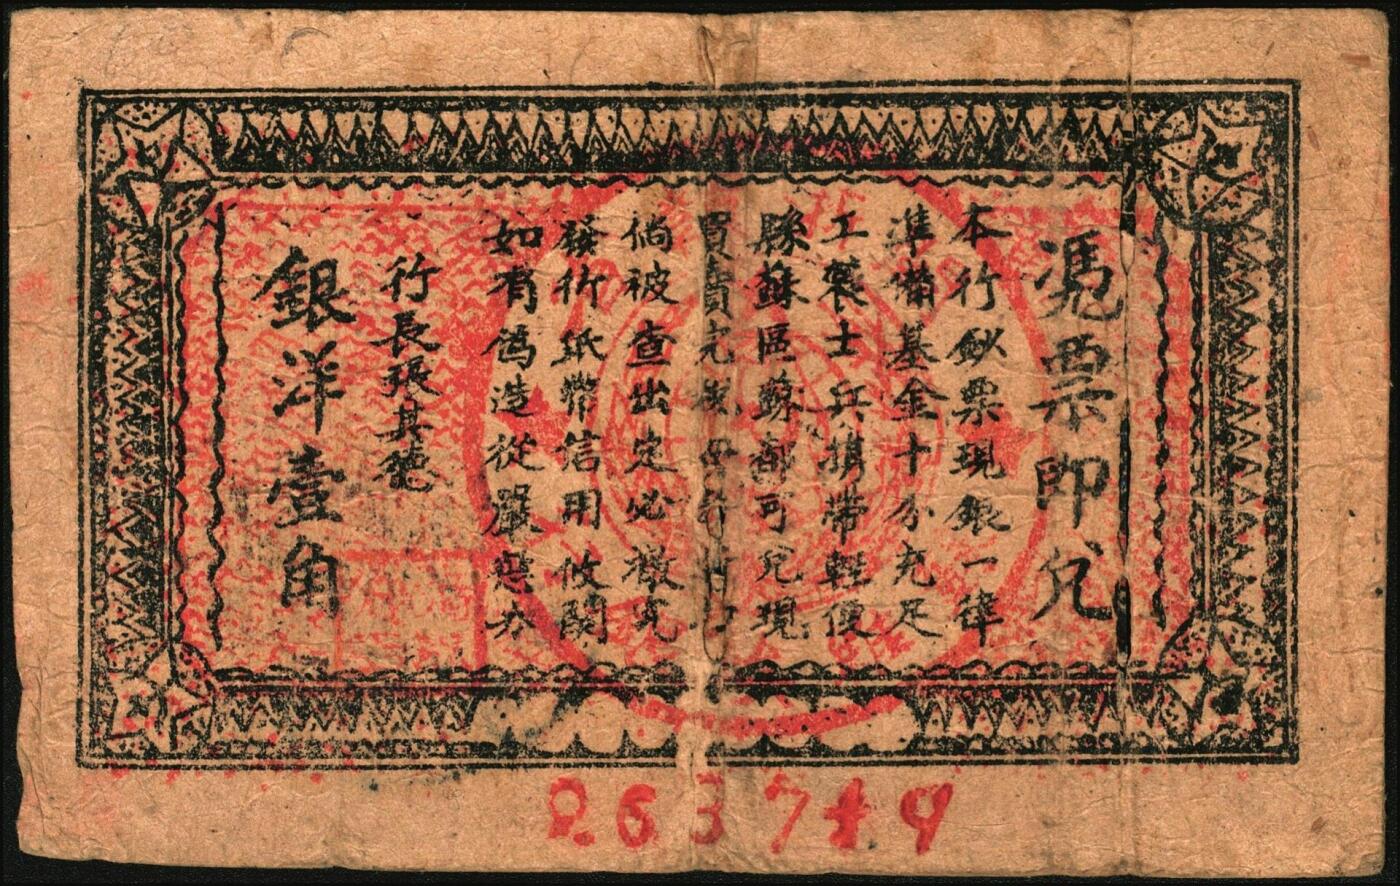 凴票即兌
本行鈔票現銀一律
準備基金十分充足
工農士兵携帶輕便
縣蘇區蘇都可兌現
買賣
倘被查出定必檄究
發行紙幣信用攸関
如有僞造從嚴懲办
行長張其德
銀洋壹角
263749